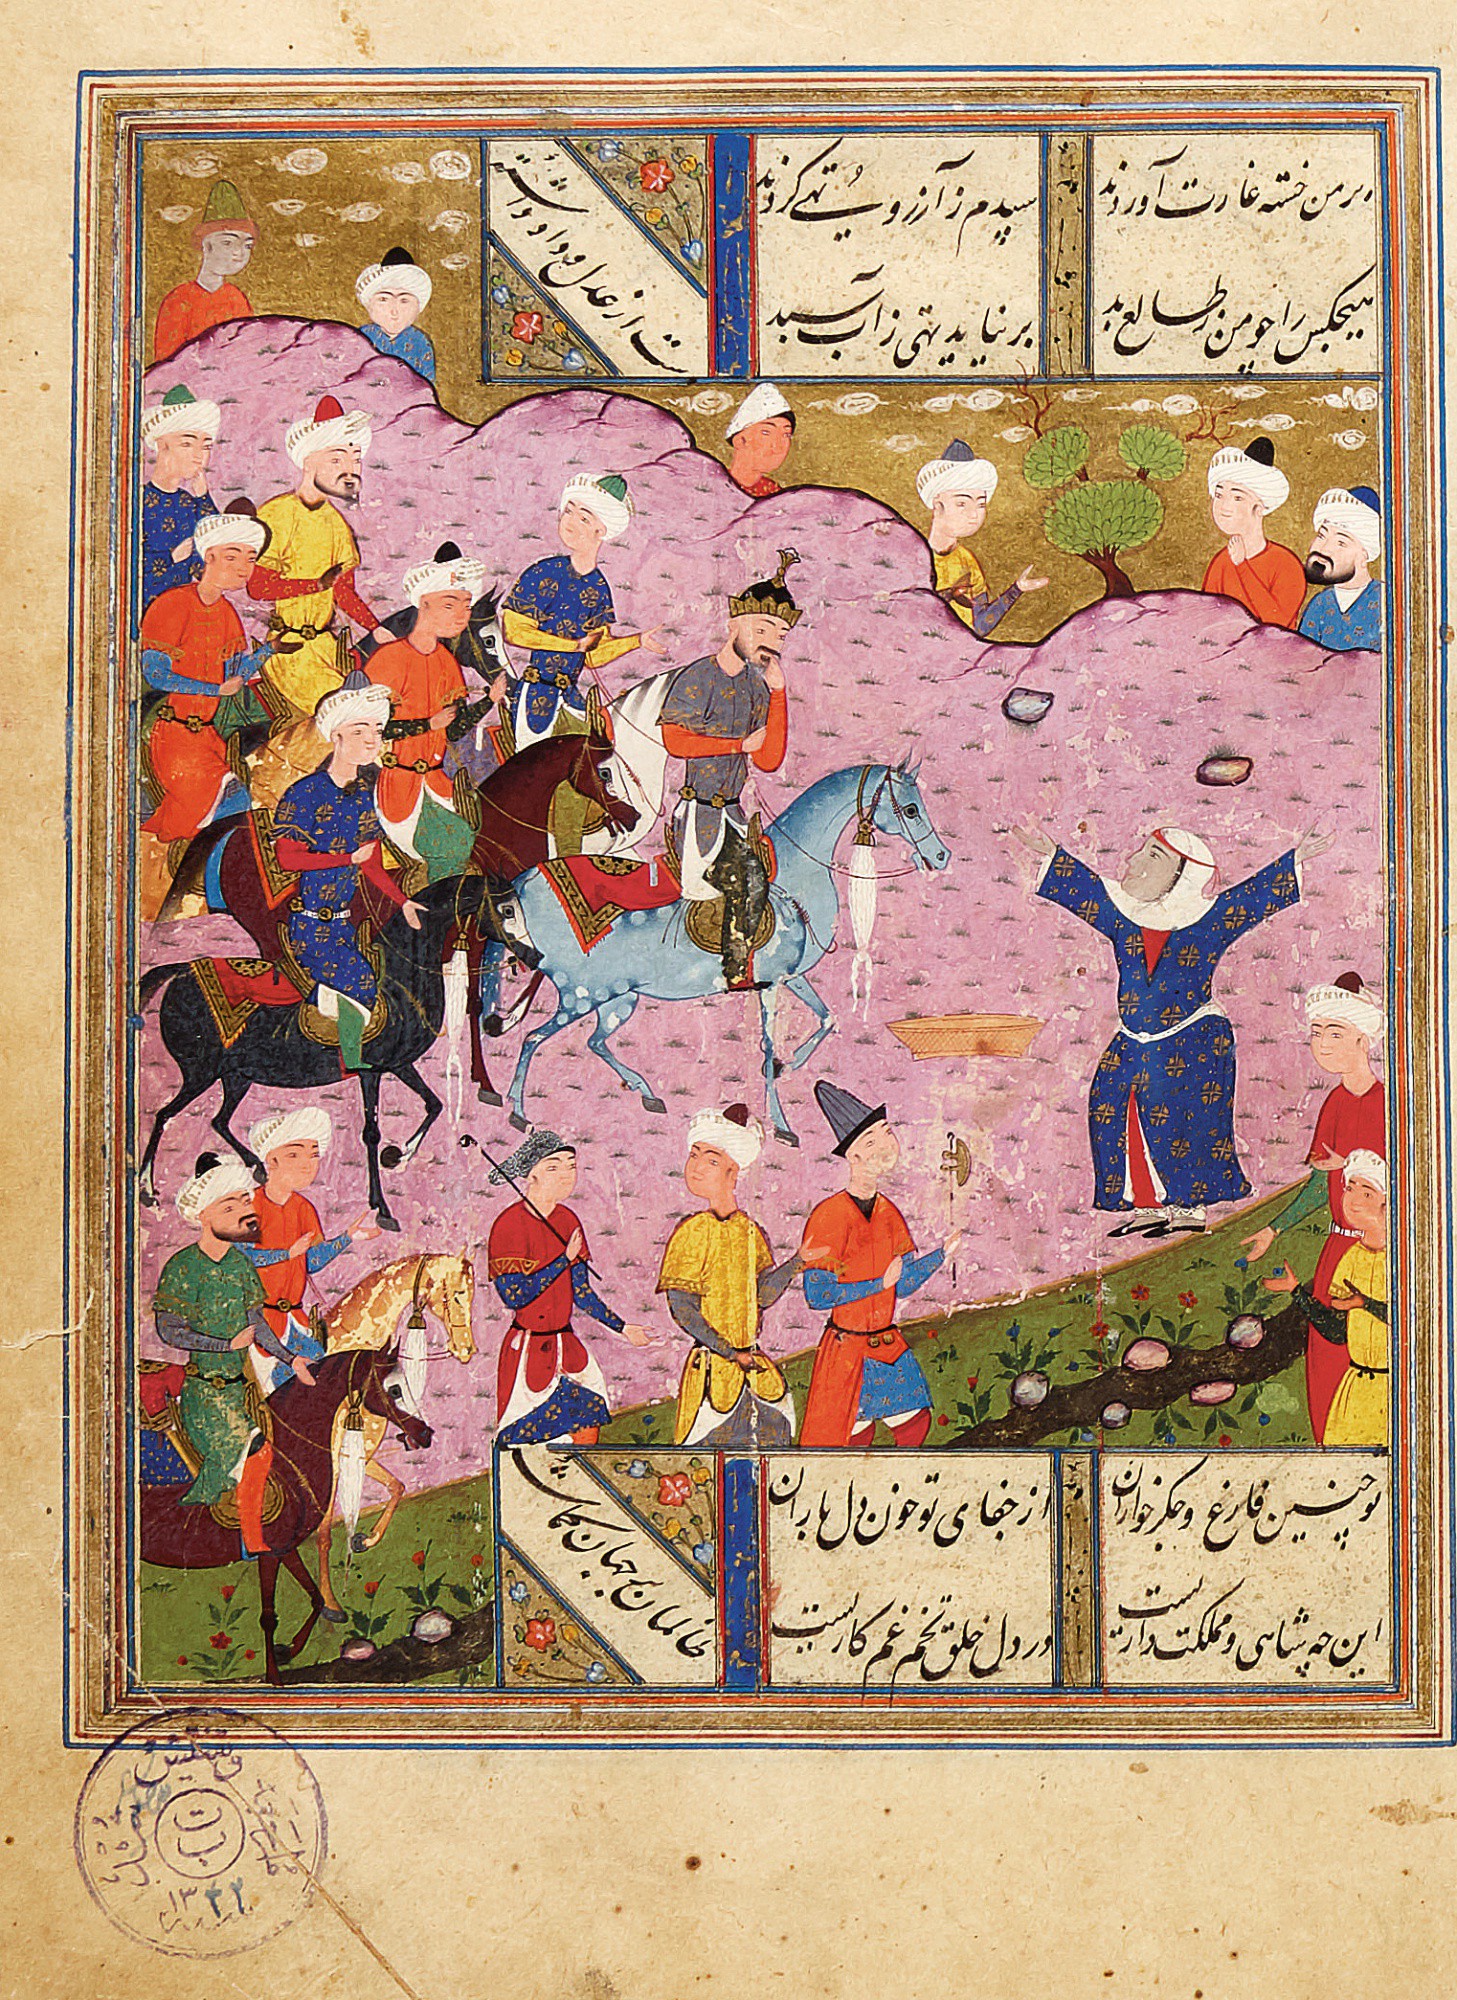 بر من خسته غارت آوردند سپدم ز آرزو تهی کردند
هیچکس را چو من ز طالع بد بر نیاید تهی ز آب سبد
دست از عدل و داد داشته
تو چنین فارغ و جگر خواران از جفای تو خون دل باران
این چه شاهی و مملکت داریست در دل خلق تخم غم کاریست
ظالمان بر جهان گماشته
تفتیش
ت
ب